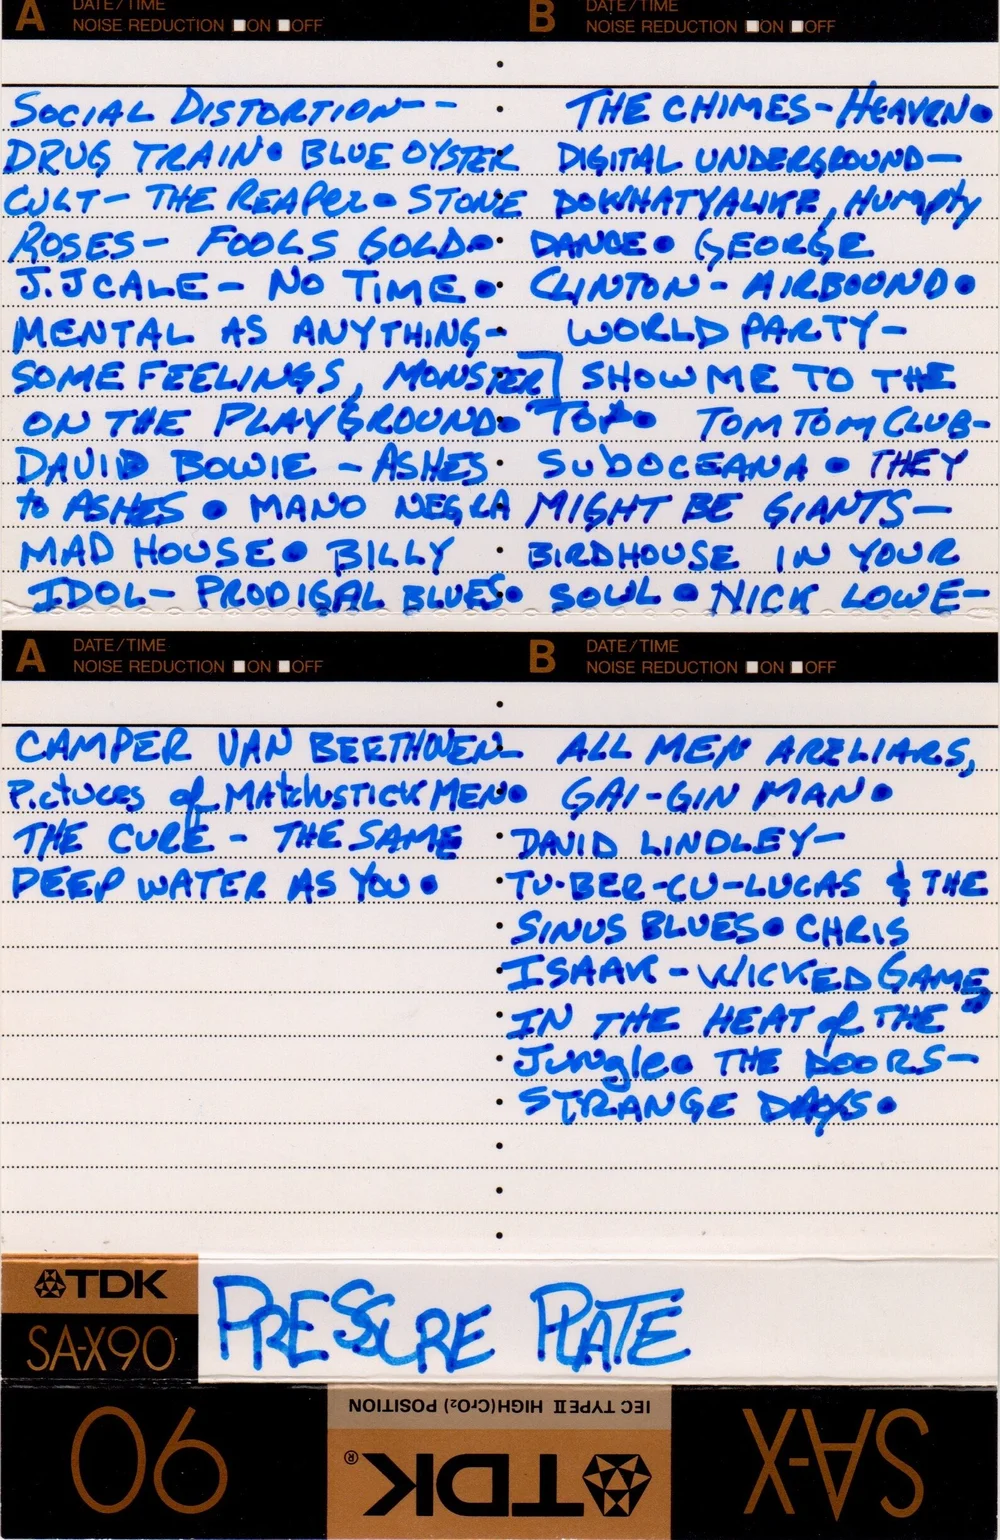 A DATE/TIME
NOISE REDUCTION ON OFF
B DATE/TIME
NOISE REDUCTION ON OFF
SOCIAL DISTORTION--
DRUG TRAIN• BLUE OYSTER
CULT- THE REAPER• STONE
ROSES- FOOLS GOLD•
J.J CALE- NO TIME•
MENTAL AS ANYTHING-
SOME FEELINGS, MONSTER
ON THE PLAYGROUND•
DAVID BOWIE - ASHES
to ASHES • MANO NEGRA
MAD HOUSE• BILLY
IDOL- PRODIGAL BLUES•
THE CHIMES-HEAVEN•
DIGITAL UNDERGROUND-
DOWHATYALIKE, HUMPTY
DANCE• GEORGE
CLINTON- AIRBOUND•
WORLD PARTY-
SHOW ME TO THE
TOP• TOM TOM CLUB-
SUBOCEANA • THEY
MIGHT BE GIANTS-
BIRDHOUSE IN YOUR
SOUL • NICK LOWE-
A DATE/TIME
NOISE REDUCTION ON OFF
B DATE/TIME
NOISE REDUCTION ON OFF
CAMPER VAN BEETHOVEN-
Pictures of MATCHSTICK MEN•
THE CURE - THE SAME
DEEP WATER AS YOU•
ALL MEN ARE LIARS,
GAI-GIN MAN•
DAVID LINDLEY-
TU-BER-CU-LUCAS & THE
SINUS BLUES• CHRIS
ISAAK - WICKED GAME,
IN THE HEAT of THE
Jungle• THE DOORS-
STRANGE DAYS•
TDK
SA-X90
PRESSURE PLATE
SA-X
TDK®
IEC TYPE II HIGH(CrO2) POSITION
90